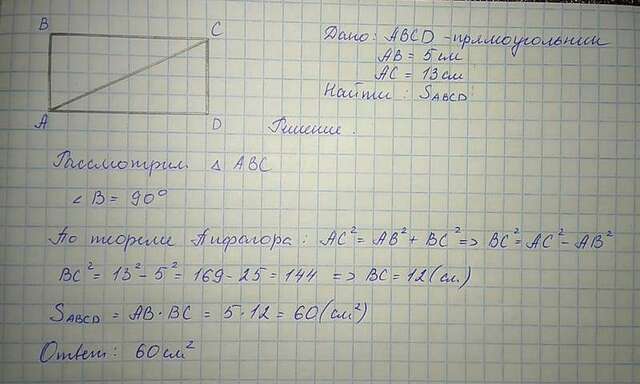 B
C
A
D
Дано: ABCD - прямоугольник
AB = 5 см
AC = 13 см
Найти: S_ABCD
Решение.
Рассмотрим △ ABC
∠ B = 90°
По теореме Пифагора: AC² = AB² + BC² => BC² = AC² - AB²
BC² = 13² - 5² = 169 - 25 = 144 => BC = 12 (см)
S_ABCD = AB · BC = 5 · 12 = 60 (см²)
Ответ: 60 см²